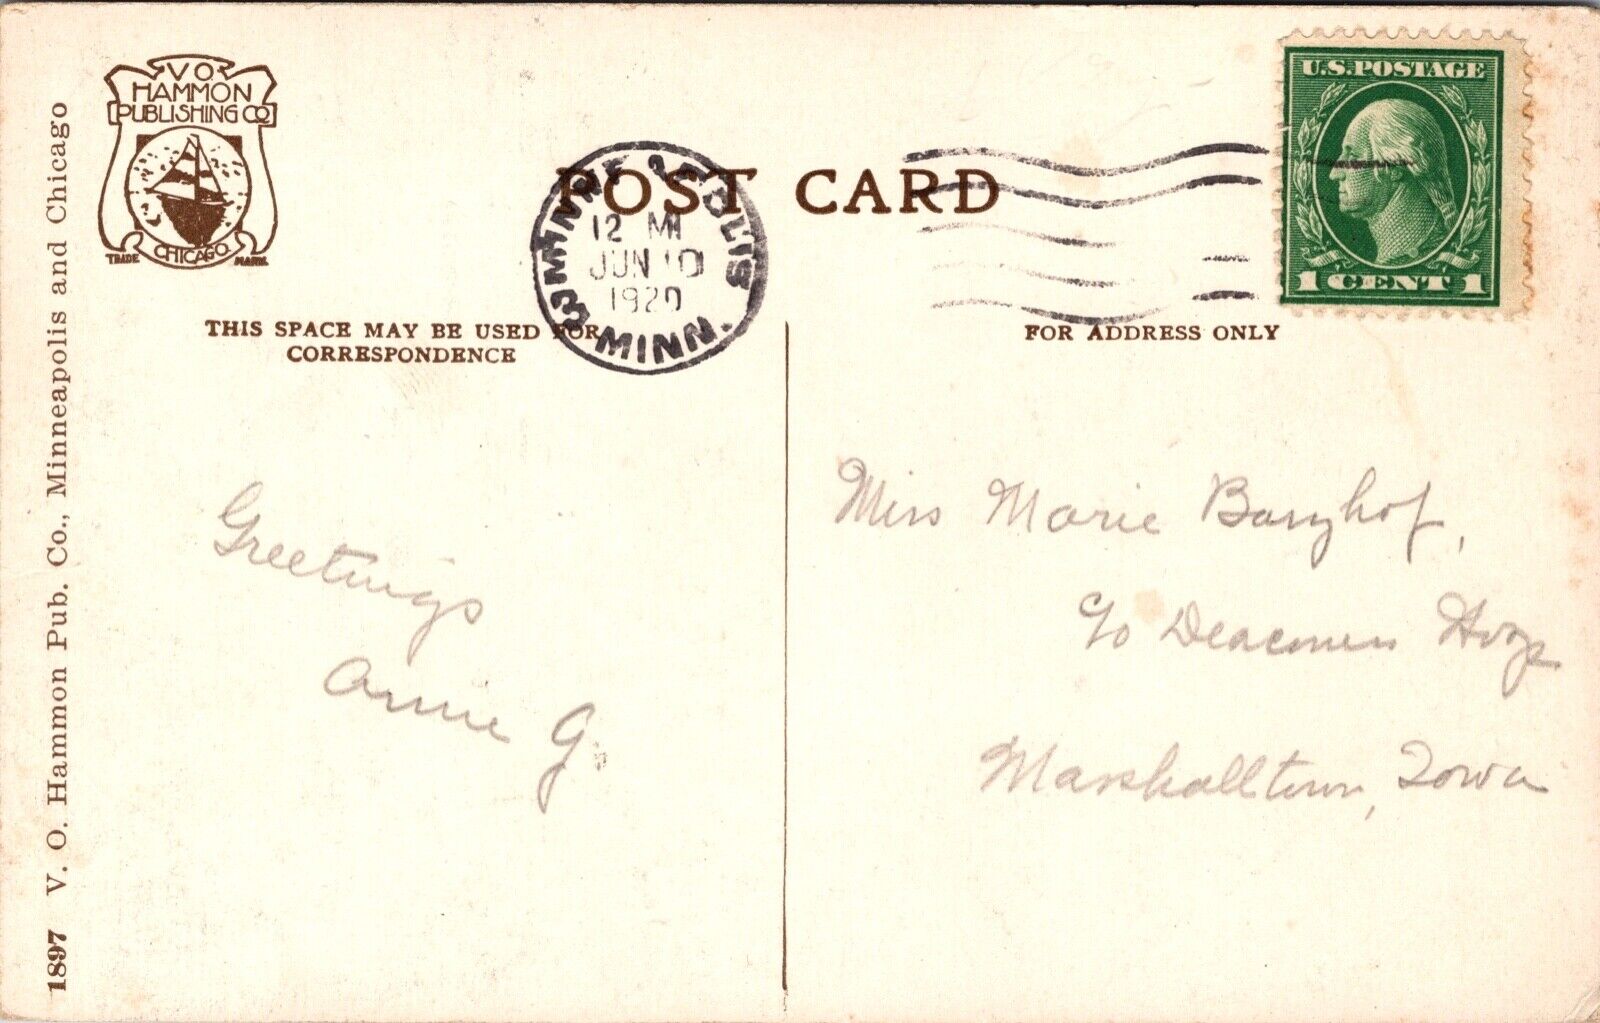 V. O.
HAMMON
PUBLISHING CO
CHICAGO
TRADE MARK
POST CARD
MINNEAPOLIS
12 M
JUN 10
1920
MINN.
U.S. POSTAGE
1 CENT 1
THIS SPACE MAY BE USED FOR
CORRESPONDENCE
FOR ADDRESS ONLY
Greetings
Annie G.
Miss Marie
c/o Deaconess Hosp
Marshalltown, Iowa
1897 V. O. Hammon Pub. Co., Minneapolis and Chicago